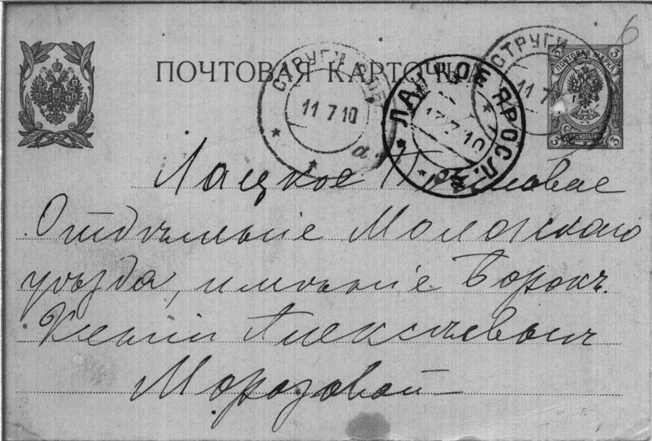 6
ПОЧТОВАЯ КАРТОЧКА
СТРУГИ
11 7 10
ЛАЦКОЕ ЯРОСЛ.
12 7 10
СТРУГИ
11 7
3 3
3 3
Лацкое Почтовое
Отдѣленіе Моложскаго
уѣзда, имѣніе Борокъ.
Ксеніи Алексѣевнѣ
Морозовой